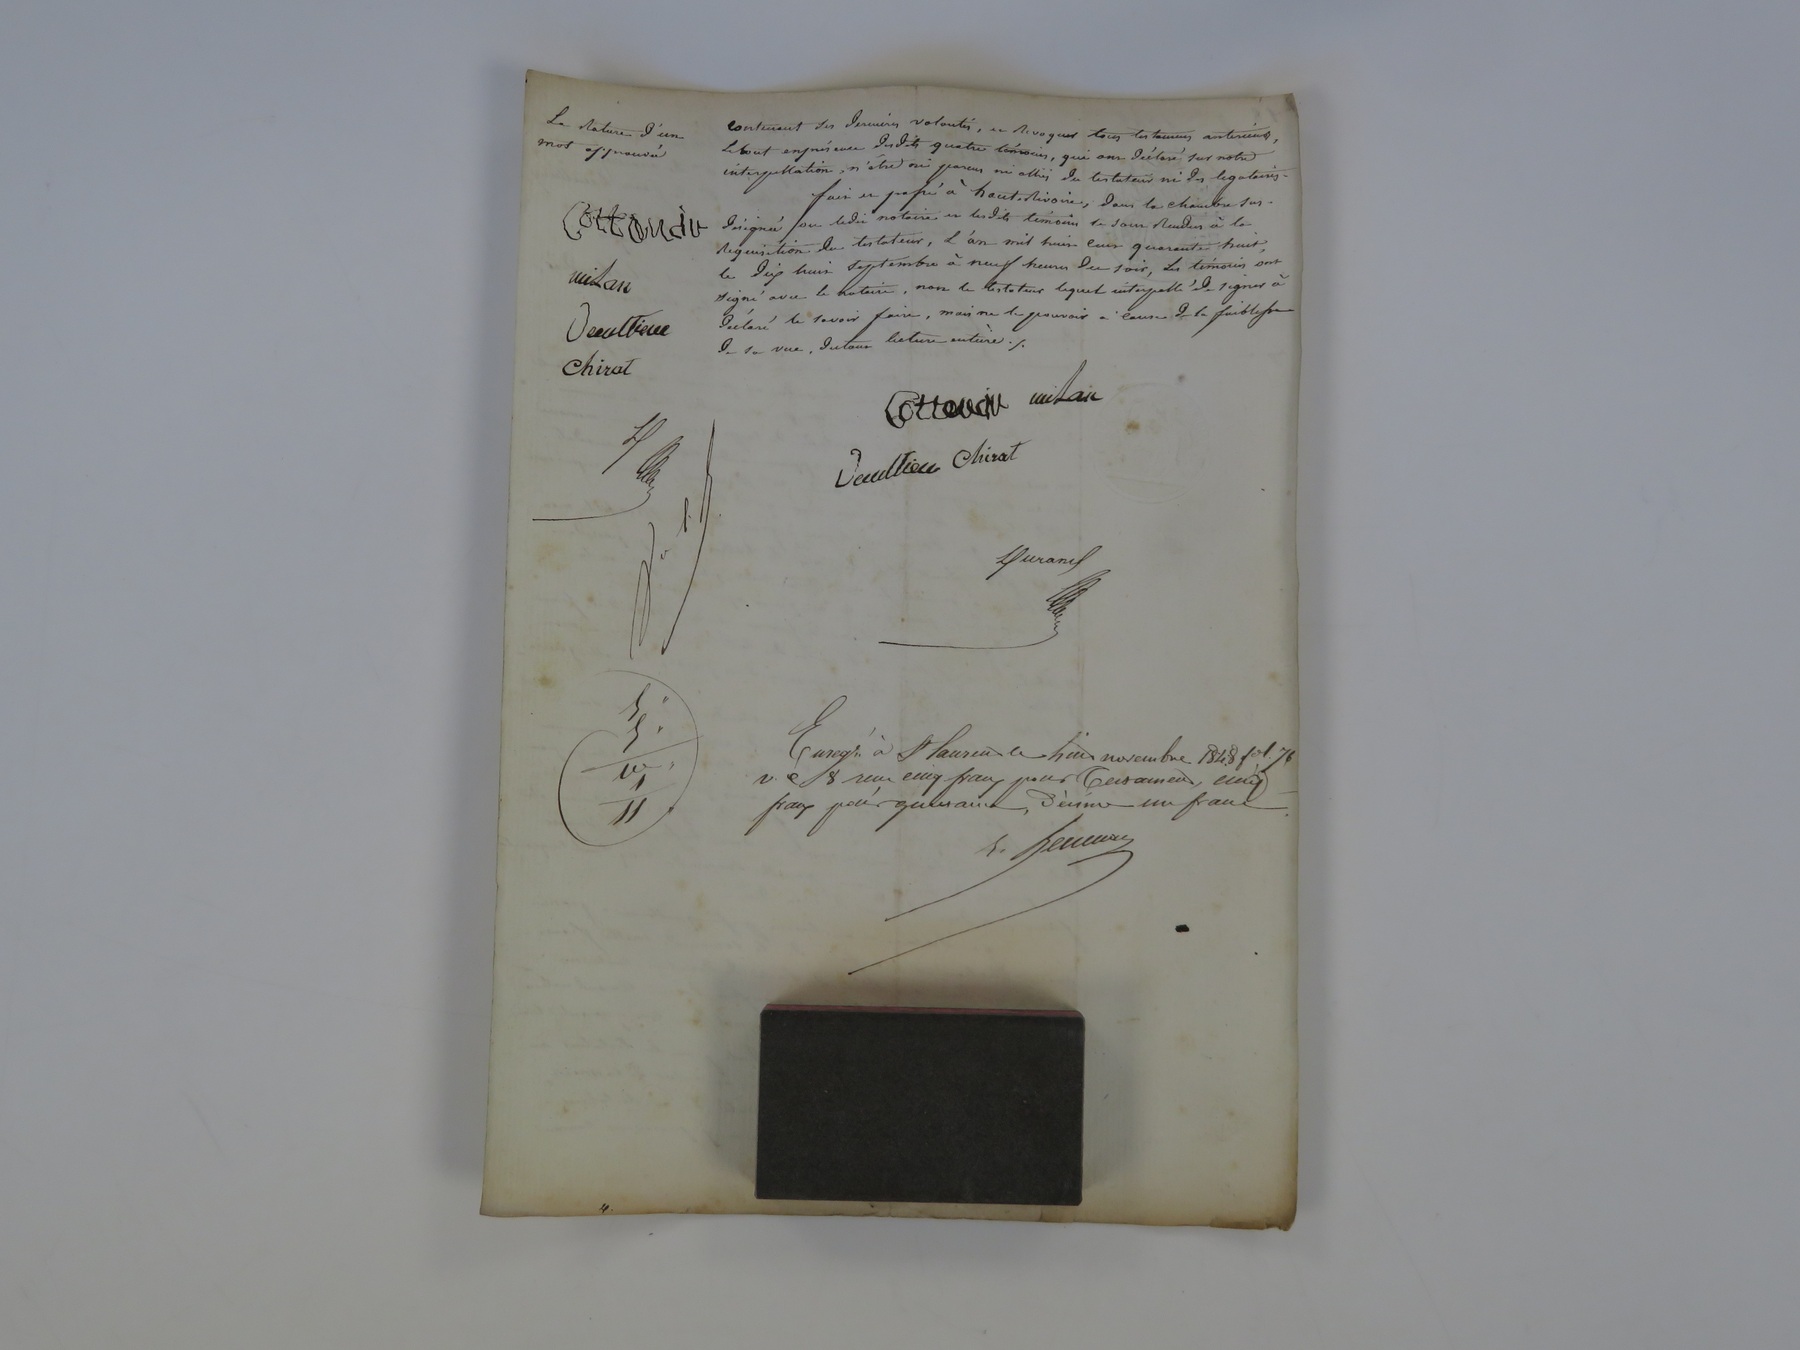 La Rature d'un
mot approuvée
contenant ses dernières volontés, et Révoquer tous testamens antérieurs,
Le tout en présence desdits quatre témoins, qui ont déclaré sur notre
interpellation, n'être ni parens ni alliés du testateur ni des légataires.
fait et passé à hauteRivoire, dans la chambre sus-
désignée, où ledit notaire et lesdits témoins se sont Rendus à la
Requisition du testateur, L'an mil huit cent quarante huit,
le dix huit Septembre à neuf heures du soir, Les témoins ont
signé avec le notaire, non le testateur lequel interpellé de signer à
déclaré le savoir faire, mais ne le pouvoir à cause de la faiblesse
de sa vue, du tout lecture entière ./.
milan
chirat
milan
chirat
Durand
Enregé. à St Laurent le huit novembre 1848 fol. 76
v. c 8 reçu cinq francs pour Testament, cinq
francs pour quittance, Décime un franc
5 "
5 "
10 "
1
11
4.